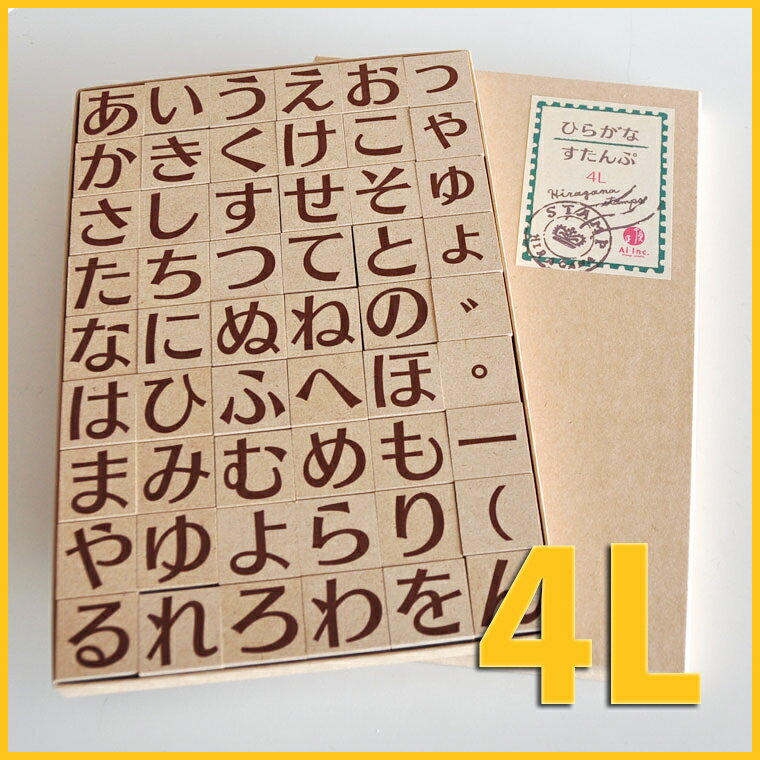 あいうえおっ
かきくけこゃ
さしすせそゅ
たちつてとょ
なにぬねの゛
はひふへほ゜
まみむめもー
やゆよらり(
るれろわをん
ひらがな
すたんぷ
4L
Hiragana
stamps
STAMP
Ai Inc.
4L